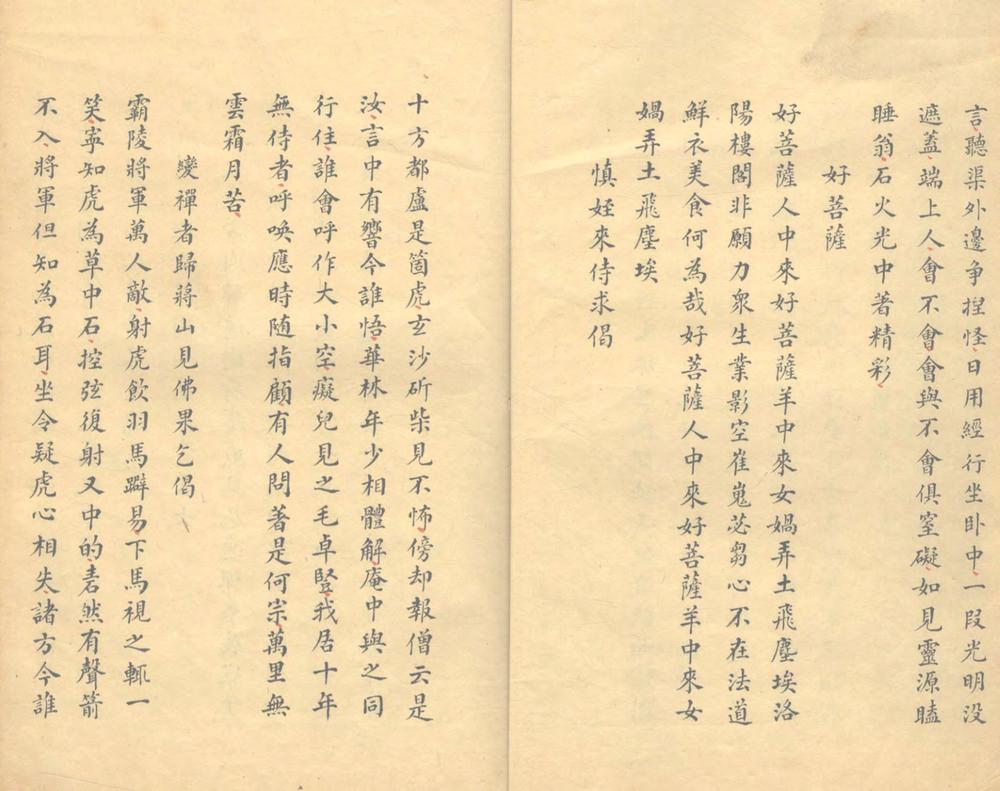 言聽渠外邊争揑怪日用經行坐卧中一段光明没
遮盖端上人會不會會與不會俱窒礙如見靈源瞌
睡翁石火光中著精彩
好菩薩
好菩薩人中來好菩薩羊中來女媧弄土飛塵埃洛
陽樓閣非願力衆生業影空崔嵬苾芻心不在法道
鮮衣美食何為哉好菩薩人中來好菩薩羊中來女
媧弄土飛塵埃
慎姪來侍求偈
十方都盧是箇虎玄沙斫柴見不怖傍却報僧云是
汝言中有響今誰悟華林年少相體解庵中與之同
行住誰會呼作大小空癡兒見之毛卓豎我居十年
無侍者呼喚應時随指顧有人問著是何宗萬里無
雲霜月苦
變禪者歸蔣山見佛果乞偈
霸陵將軍萬人敵射虎飲羽馬躃易下馬視之輒一
笑寧知虎為草中石控弦復射又中的砉然有聲箭
不入將軍但知為石耳坐令疑虎心相失諸方今誰